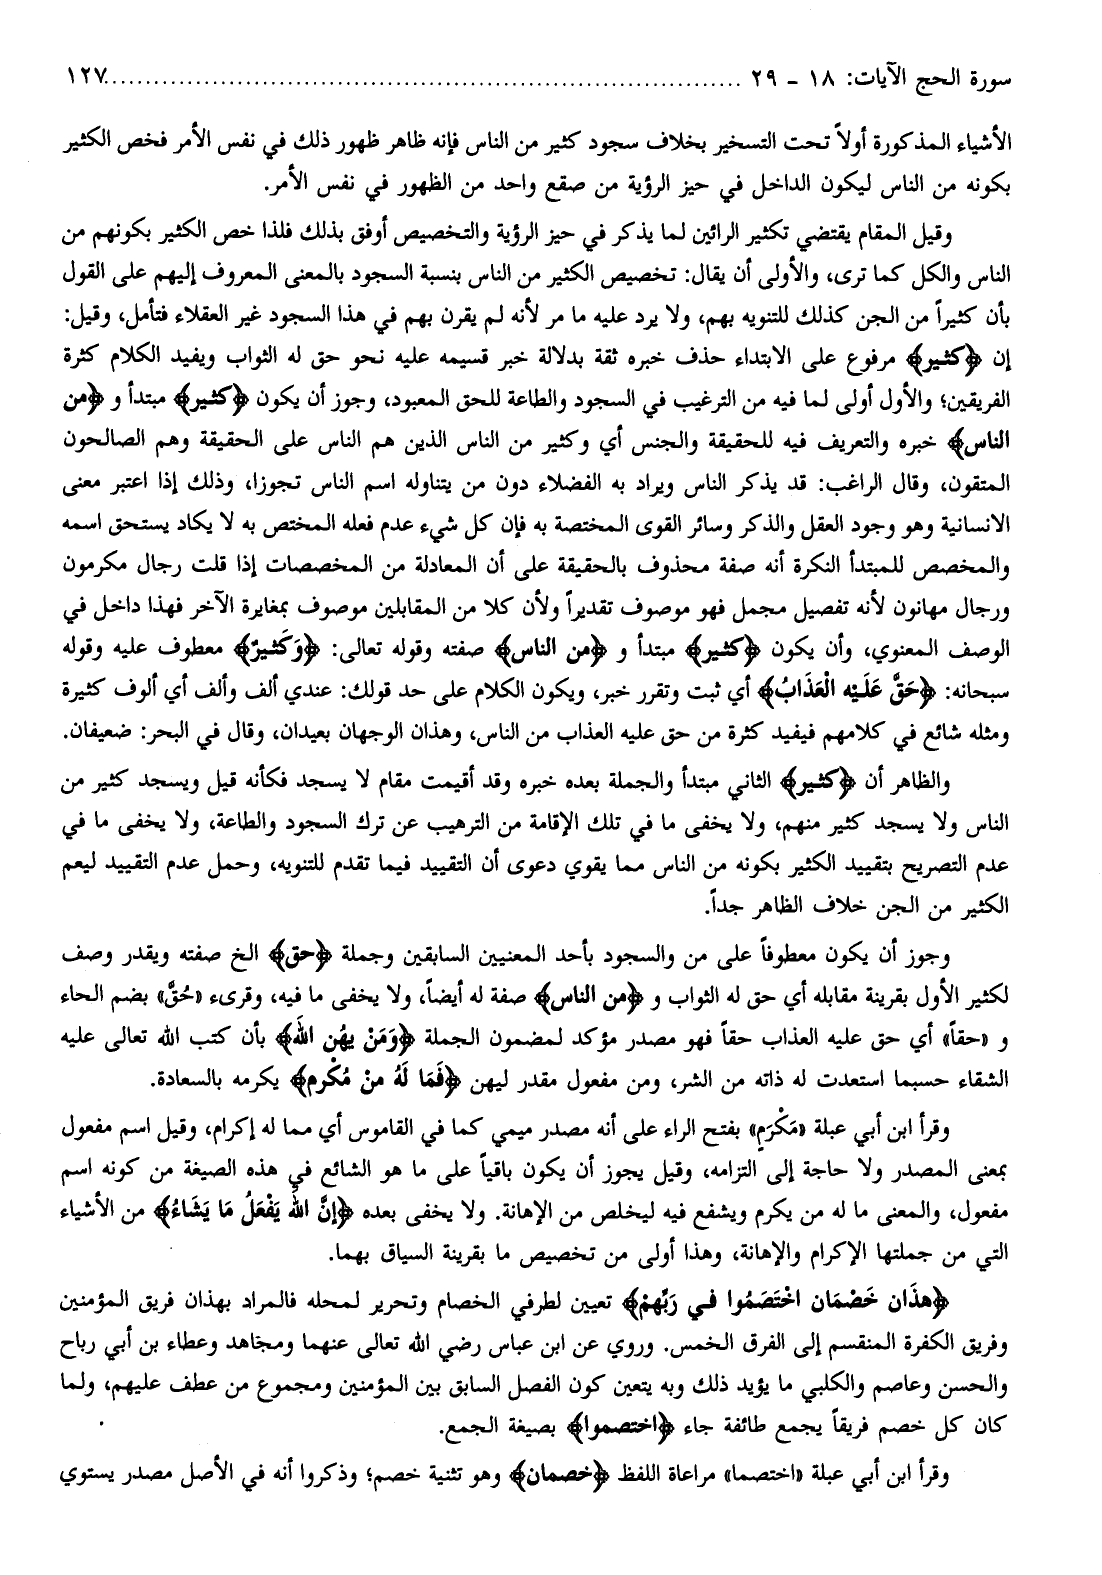 سورة الحج الآيات: ١٨ - ٢٩ ........................................ ١٢٧
الأشياء المذكورة أولاً تحت التسخير بخلاف سجود كثير من الناس فإنه ظاهر ظهور ذلك في نفس الأمر فخص الكثير
بكونه من الناس ليكون الداخل في حيز الرؤية من صقع واحد من الظهور في نفس الأمر.
وقيل المقام يقتضي تكثير الرائين لما يذكر في حيز الرؤية والتخصيص أوفق بذلك فلذا خص الكثير بكونهم من
الناس والكل كما ترى، والأولى أن يقال: تخصيص الكثير من الناس بنسبة السجود بالمعنى المعروف إليهم على القول
بأن كثيراً من الجن كذلك للتنويه بهم، ولا يرد عليه ما مر لأنه لم يقرن بهم في هذا السجود غير العقلاء فتأمل، وقيل:
إن ﴿كثير﴾ مرفوع على الابتداء حذف خبره ثقة بدلالة خبر قسيمه عليه نحو حق له الثواب ويفيد الكلام كثرة
الفريقين؛ والأول أولى لما فيه من الترغيب في السجود والطاعة للحق المعبود، وجوز أن يكون ﴿كثير﴾ مبتدأ و ﴿من
الناس﴾ خبره والتعريف فيه للحقيقة والجنس أي وكثير من الناس الذين هم الناس على الحقيقة وهم الصالحون
المتقون، وقال الراغب: قد يذكر الناس ويراد به الفضلاء دون من يتناوله اسم الناس تجوزا، وذلك إذا اعتبر معنى
الانسانية وهو وجود العقل والذكر وسائر القوى المختصة به فإن كل شيء عدم فعله المختص به لا يكاد يستحق اسمه
والمخصص للمبتدأ النكرة أنه صفة محذوف بالحقيقة على أن المعادلة من المخصصات إذا قلت رجال مكرمون
ورجال مهانون لأنه تفصيل مجمل فهو موصوف تقديراً ولأن كلا من المقابلين موصوف بمغايرة الآخر فهذا داخل في
الوصف المعنوي، وأن يكون ﴿كثير﴾ مبتدأ و ﴿من الناس﴾ صفته وقوله تعالى: ﴿وَكَثيرٌ﴾ معطوف عليه وقوله
سبحانه: ﴿حَقَّ عَلَيْه الْعَذَابُ﴾ أي ثبت وتقرر خبر، ويكون الكلام على حد قولك: عندي ألف وألف أي ألوف كثيرة
ومثله شائع في كلامهم فيفيد كثرة من حق عليه العذاب من الناس، وهذان الوجهان بعيدان، وقال في البحر: ضعيفان.
والظاهر أن ﴿كثير﴾ الثاني مبتدأ والجملة بعده خبره وقد أقيمت مقام لا يسجد فكأنه قيل ويسجد كثير من
الناس ولا يسجد كثير منهم، ولا يخفى ما في تلك الإقامة من الترهيب عن ترك السجود والطاعة، ولا يخفى ما في
عدم التصريح بتقييد الكثير بكونه من الناس مما يقوي دعوى أن التقييد فيما تقدم للتنويه، وحمل عدم التقييد ليعم
الكثير من الجن خلاف الظاهر جداً.
وجوز أن يكون معطوفاً على من والسجود بأحد المعنيين السابقين وجملة ﴿حق﴾ الخ صفته ويقدر وصف
لكثير الأول بقرينة مقابله أي حق له الثواب و ﴿من الناس﴾ صفة له أيضاً، ولا يخفى ما فيه، وقرىء «حُقَّ» بضم الحاء
و «حقاً» أي حق عليه العذاب حقاً فهو مصدر مؤكد لمضمون الجملة ﴿وَمَنْ يهُن اللَّه﴾ بأن كتب الله تعالى عليه
الشقاء حسبما استعدت له ذاته من الشر، ومن مفعول مقدر ليهن ﴿فَمَا لَهُ منْ مُكْرم﴾ يكرمه بالسعادة.
وقرأ ابن أبي عبلة «مَكْرَمٍ» بفتح الراء على أنه مصدر ميمي كما في القاموس أي مما له إكرام، وقيل اسم مفعول
بمعنى المصدر ولا حاجة إلى التزامه، وقيل يجوز أن يكون باقياً على ما هو الشائع في هذه الصيغة من كونه اسم
مفعول، والمعنى ما له من يكرم ويشفع فيه ليخلص من الإهانة. ولا يخفى بعده ﴿إنَّ اللَّه يَفْعَلُ مَا يَشَاءُ﴾ من الأشياء
التي من جملتها الإكرام والإهانة، وهذا أولى من تخصيص ما بقرينة السياق بهما.
﴿هذَان خَصْمَان اخْتَصَمُوا في رَبِّهمْ﴾ تعيين لطرفي الخصام وتحرير لمحله فالمراد بهذان فريق المؤمنين
وفريق الكفرة المنقسم إلى الفرق الخمس. وروي عن ابن عباس رضي الله تعالى عنهما ومجاهد وعطاء بن أبي رباح
والحسن وعاصم والكلبي ما يؤيد ذلك وبه يتعين كون الفصل السابق بين المؤمنين ومجموع من عطف عليهم، ولما
كان كل خصم فريقاً يجمع طائفة جاء ﴿اختصموا﴾ بصيغة الجمع.
وقرأ ابن أبي عبلة «اختصما» مراعاة اللفظ ﴿خصمان﴾ وهو تثنية خصم؛ وذكروا أنه في الأصل مصدر يستوي